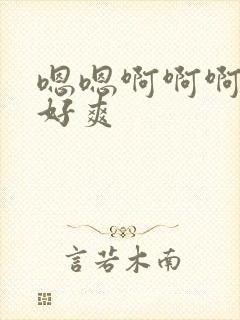 嗯嗯啊啊啊
好爽
言若木南